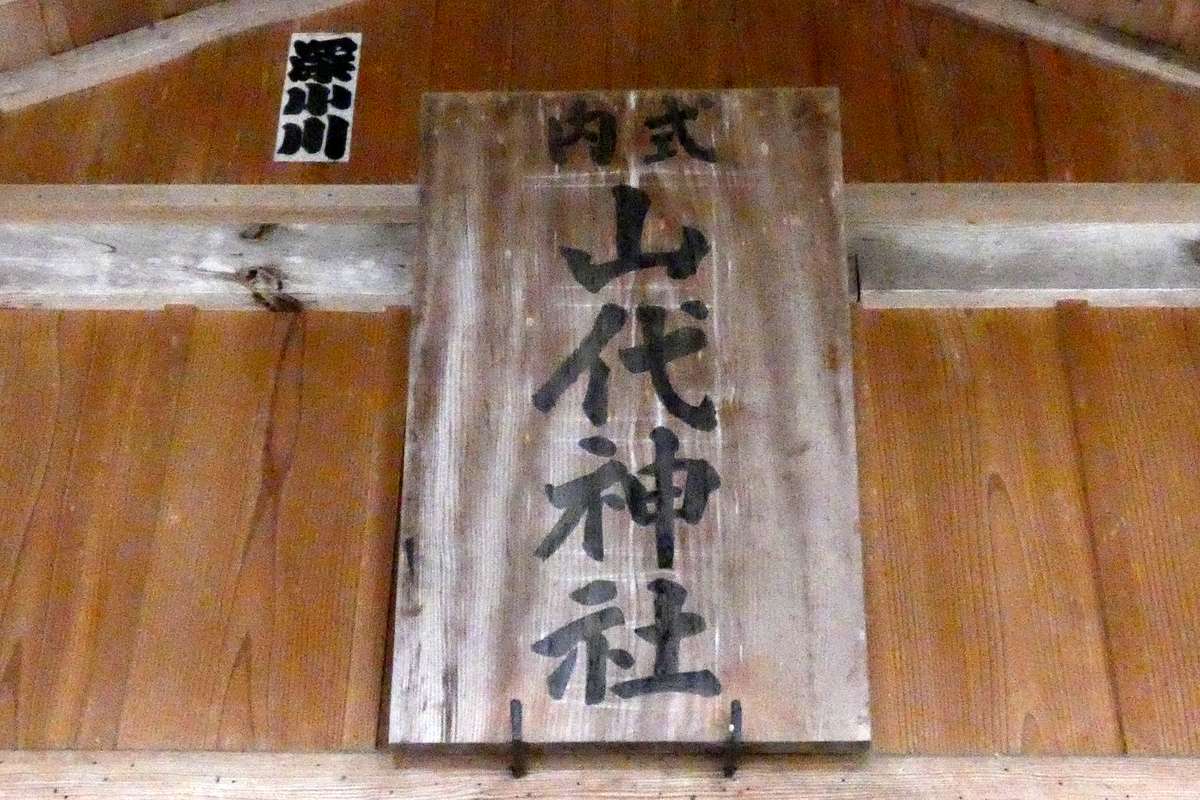 式内
山代神社
深小川